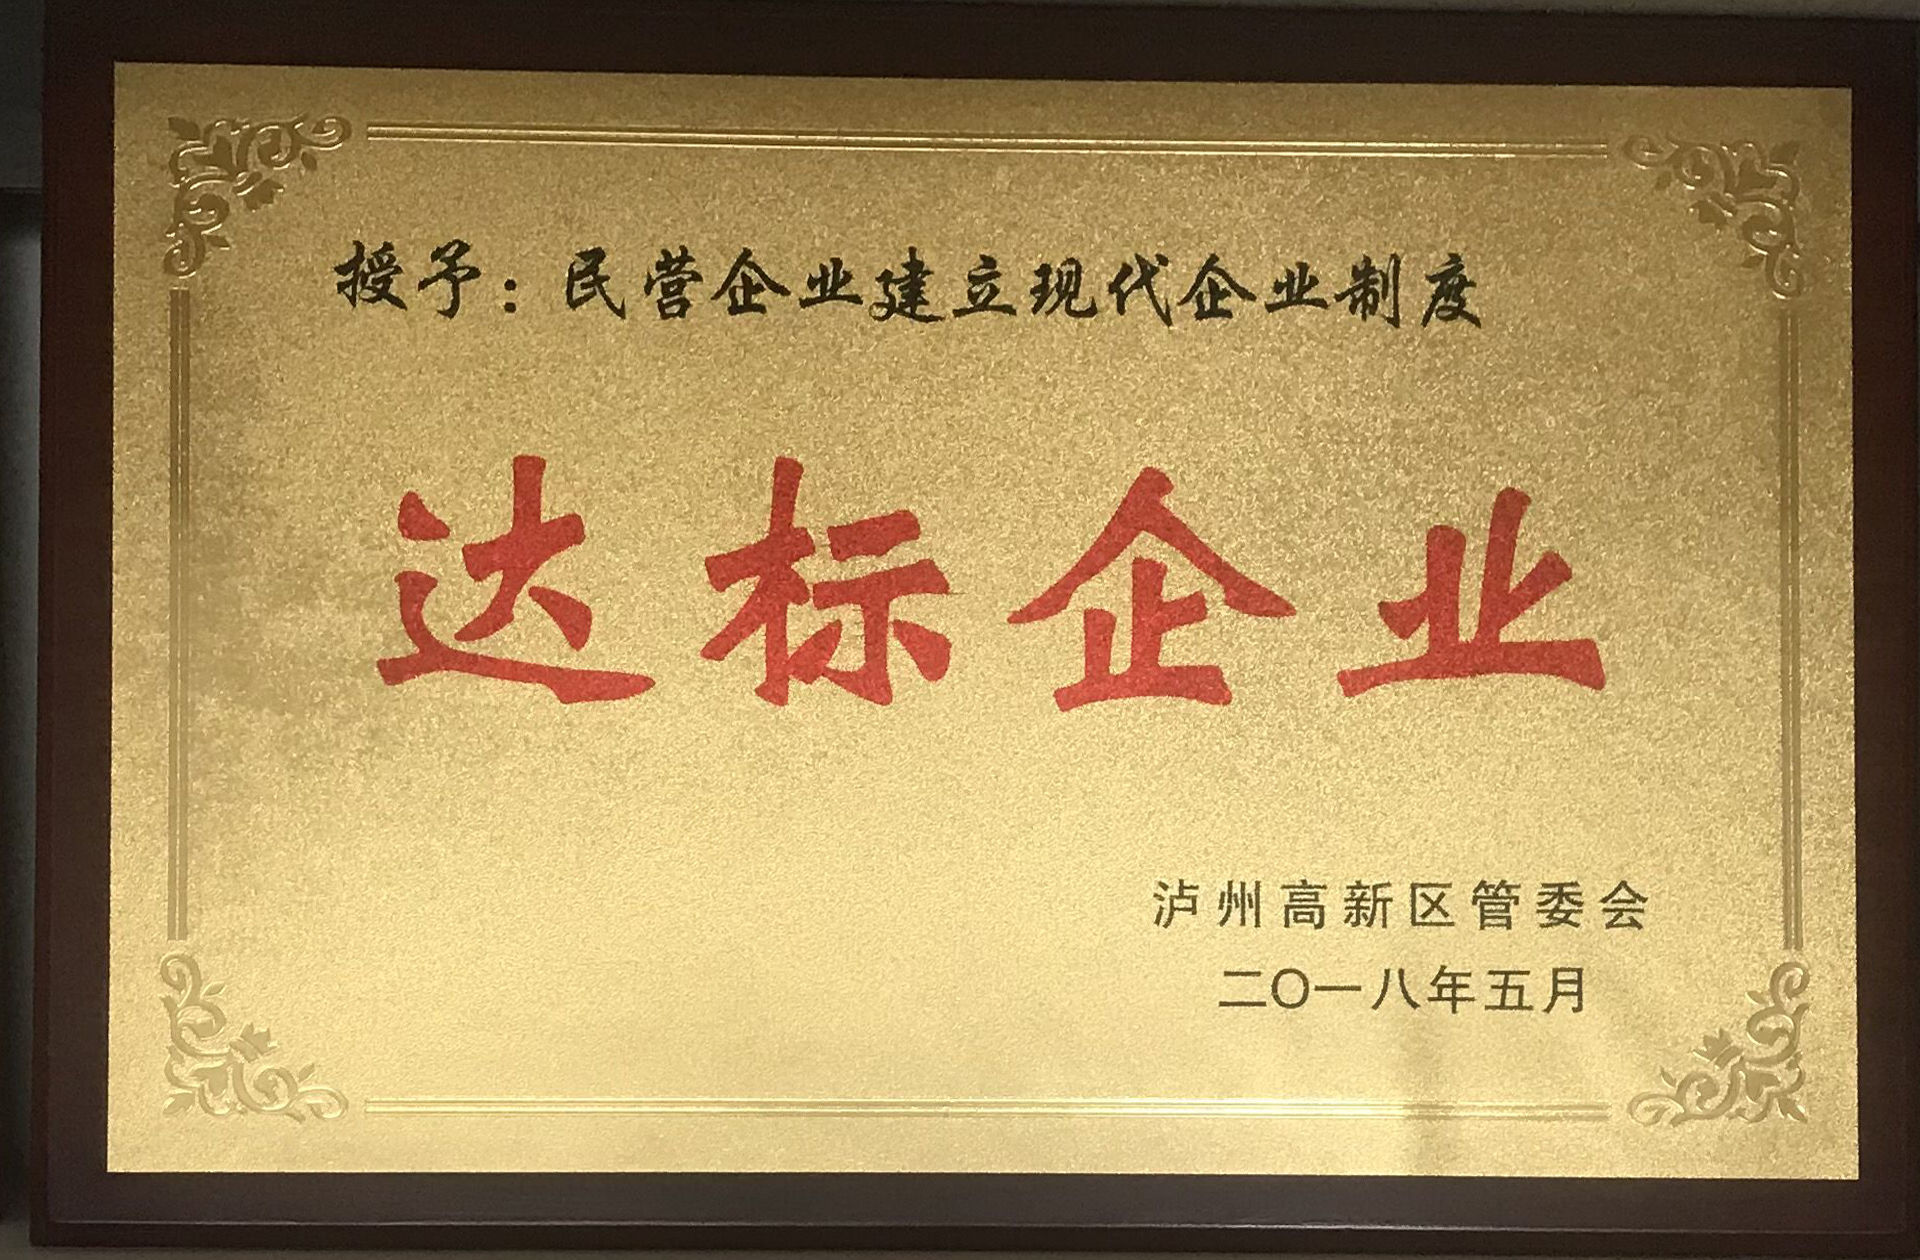 授予：民营企业建立现代企业制度
达标企业
泸州高新区管委会
二〇一八年五月